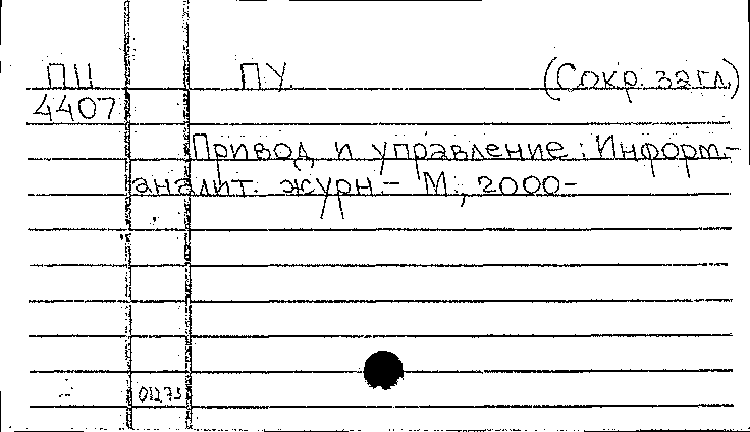 ПЦ ПУ. (Сокр. загл.)
4407
Привод и управление: Информ.-
аналит. журн.- М., 2000-
01273